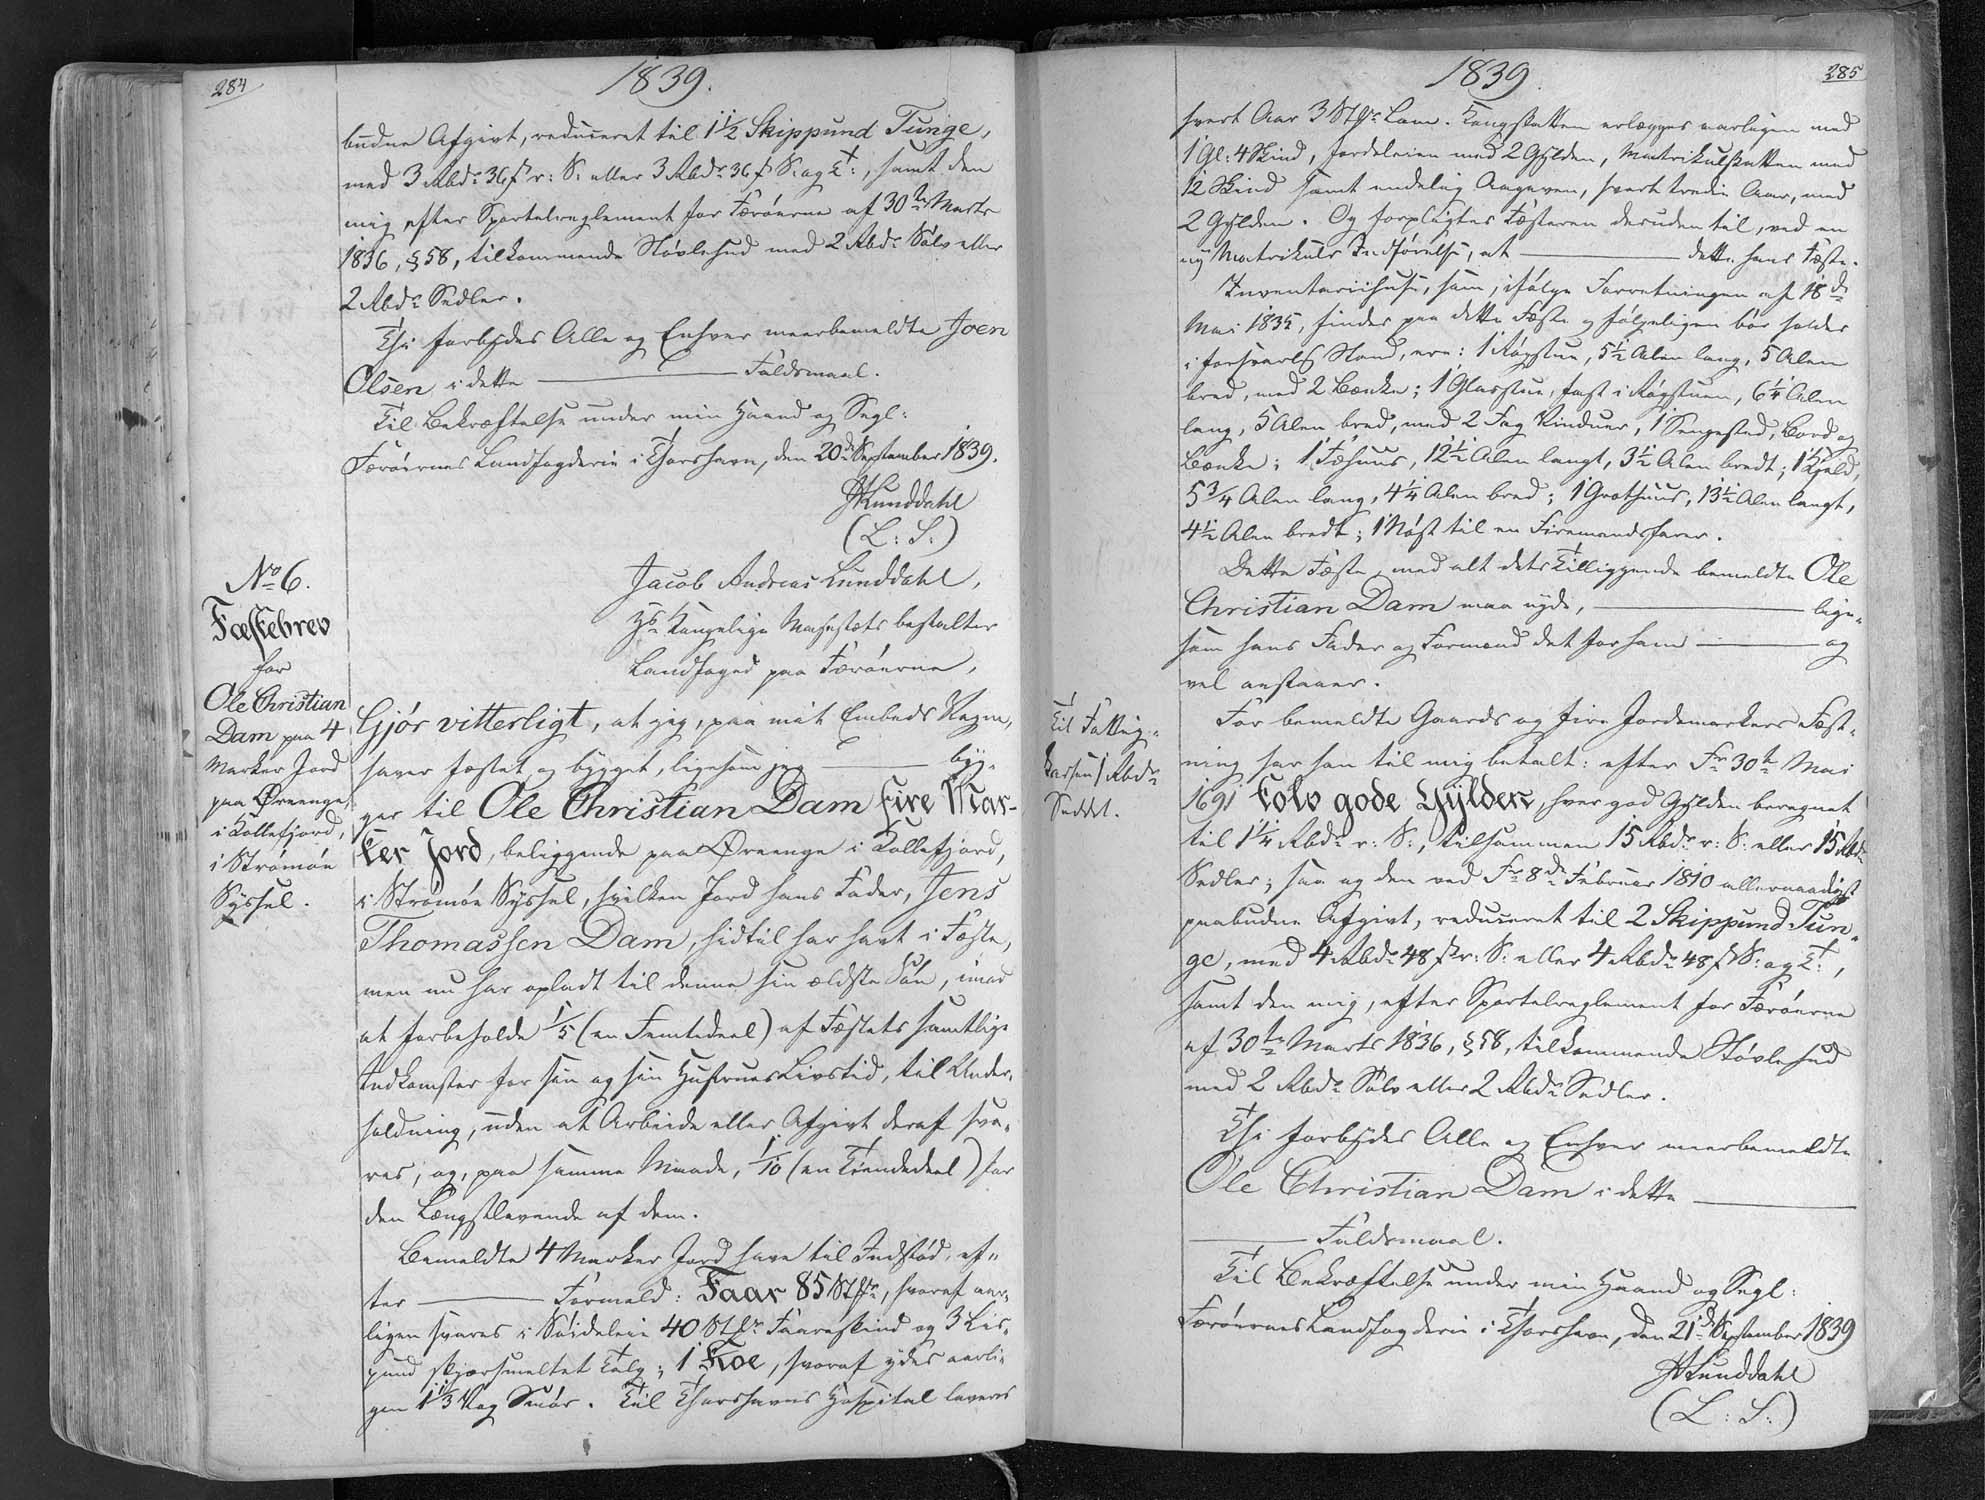 284
1839.
budne Afgivt, reduceret til 1½ Skippund Tunge,
med 3 Rbd: 36 ß r: S: eller 3 Rbd: 36 ß S: og T:, samt den
mig, efter Sportelreglement for Færöerne af 30te Marts
1836, § 58, tilkommende Støvlehud med 2 Rbd: Sølv eller
2 Rbd: Sedler.
Thi forbydes Alle og Enhver meerbemeldte Joen
Olsen i dette ——— Faldsmaal.
Til Bekræftelse under min Haand og Segl:
Færöernes Landfogderie i Thorshavn, den 20de September 1839.
Lunddahl
(L: S:)
No 6.
Fæstebrev
for
Ole Christian
Dam paa 4
Marker Jord
paa Øreenge,
i Kollefjord,
i Strömöe
Syssel.
Jacob Andreas Lunddahl,
Hs Kongelige Majestæts bestalter
Landfoged paa Færöerne,
Gjör vitterligt, at jeg, paa mit Embeds Vegne,
haver fæstet og bygget, ligesom jeg ——— byg-
ger til Ole Christian Dam fire Mar-
ker Jord, beliggende paa Øreenge i Kollefjord,
i Strömöe Syssel, hvilken Jord hans Fader, Jens
Thomassen Dam, hidtil har havt i Fæste,
men nu har opladt til denne sin ældste Søn, imod
at forbeholde 1/5 (en Femtedeel) af Fæstets samtlige
Indkomster for sin og sin Hustrues Livstid, til Under-
holdning, uden at Arbeide eller Afgivt deraf sva-
res; og, paa samme Maade, 1/10 (en Tiendedeel) for
den Længstlevende af dem.
Bemeldte 4 Marker Jord have til Indstød, ef-
ter ——— Formeld: Faar 85 Stkr, hvoraf aar-
ligen svares i Søideleie 40 Stkr Faareskind og 3 Lis-
pund skjærsmeltet Talg; 1 Koe, hvoraf ydes aarli-
gen 1 1/3 Vog Smör. Til Thorshavns Hospital leveres
1839.
285
hvert Aar 3 Stkr Lam. Kongskatten erlægges aarligen med
1 Gl: 4 Skind, Jordeleien med 2 Gylden, Matrikulskatten med
12 Skind samt endelig Aagaven, hvert tredie Aar, med
2 Gylden. Og forpligtes Fæsteren desuden til, ved en
ny Matrikuls Indførelse, at ——— dette hans Fæste.
Inventariihuse, som, ifølge Forretningen af 18de
Mai 1835, findes paa dette Fæste og følgeligen bör holdes
i forsvarlig Stand, ere: 1 Røgstue, 5½ Alen lang, 5 Alen
bred, med 2 Bænke; 1 Glasstue, fast i Røgstuen, 6¼ Alen
lang, 5 Alen bred, med 2 Fag Vinduer, 1 Sengested, Bord og
Bænke; 1 Fæhuus, 12½ Alen langt, 3½ Alen bredt; 1 Hjeld,
5¾ Alen lang, 4¼ Alen bred; 1 Grothuus, 13½ Alen langt,
4½ Alen bredt; 1 Nøst til en Firemandsfarer.
Dette Fæste, med alt dets Tilliggende bemeldte Ole
Christian Dam maa nyde, ——— lige-
som hans Fader og Formænd det for ham ——— og
vel anstaaer.
Til Fattig-
kassen 1 Rbdr
Seddel.
For bemeldte Gaards og fire Jordemarkers Fæst-
ning har han til mig betalt: efter Fr 30te Mai
1691 tolv gode Gylden, hver god Gylden beregnet
til 1¼ Rbdr r: S:, tilsammen 15 Rbdr r: S: eller 15 Rbdr
Sedler; saa og den ved Fr 8de Februar 1810 allernaadigst
paabudne Afgivt, reduceret til 2 Skippund Tun-
ge, med 4 Rbdr 48 ß r: S: eller 4 Rbdr 48 ß S: og T:,
samt den mig, efter Sportelreglement for Færöerne
af 30te Marts 1836, § 58, tilkommende Støvlehud
med 2 Rbdr Sølv eller 2 Rbdr Sedler.
Thi forbydes Alle og Enhver meerbemeldte
Ole Christian Dam i dette ———
——— Faldsmaal.
Til Bekræftelse under min Haand og Segl:
Færöernes Landfogderie i Thorshavn, den 21de September 1839
Lunddahl
(L: S:)